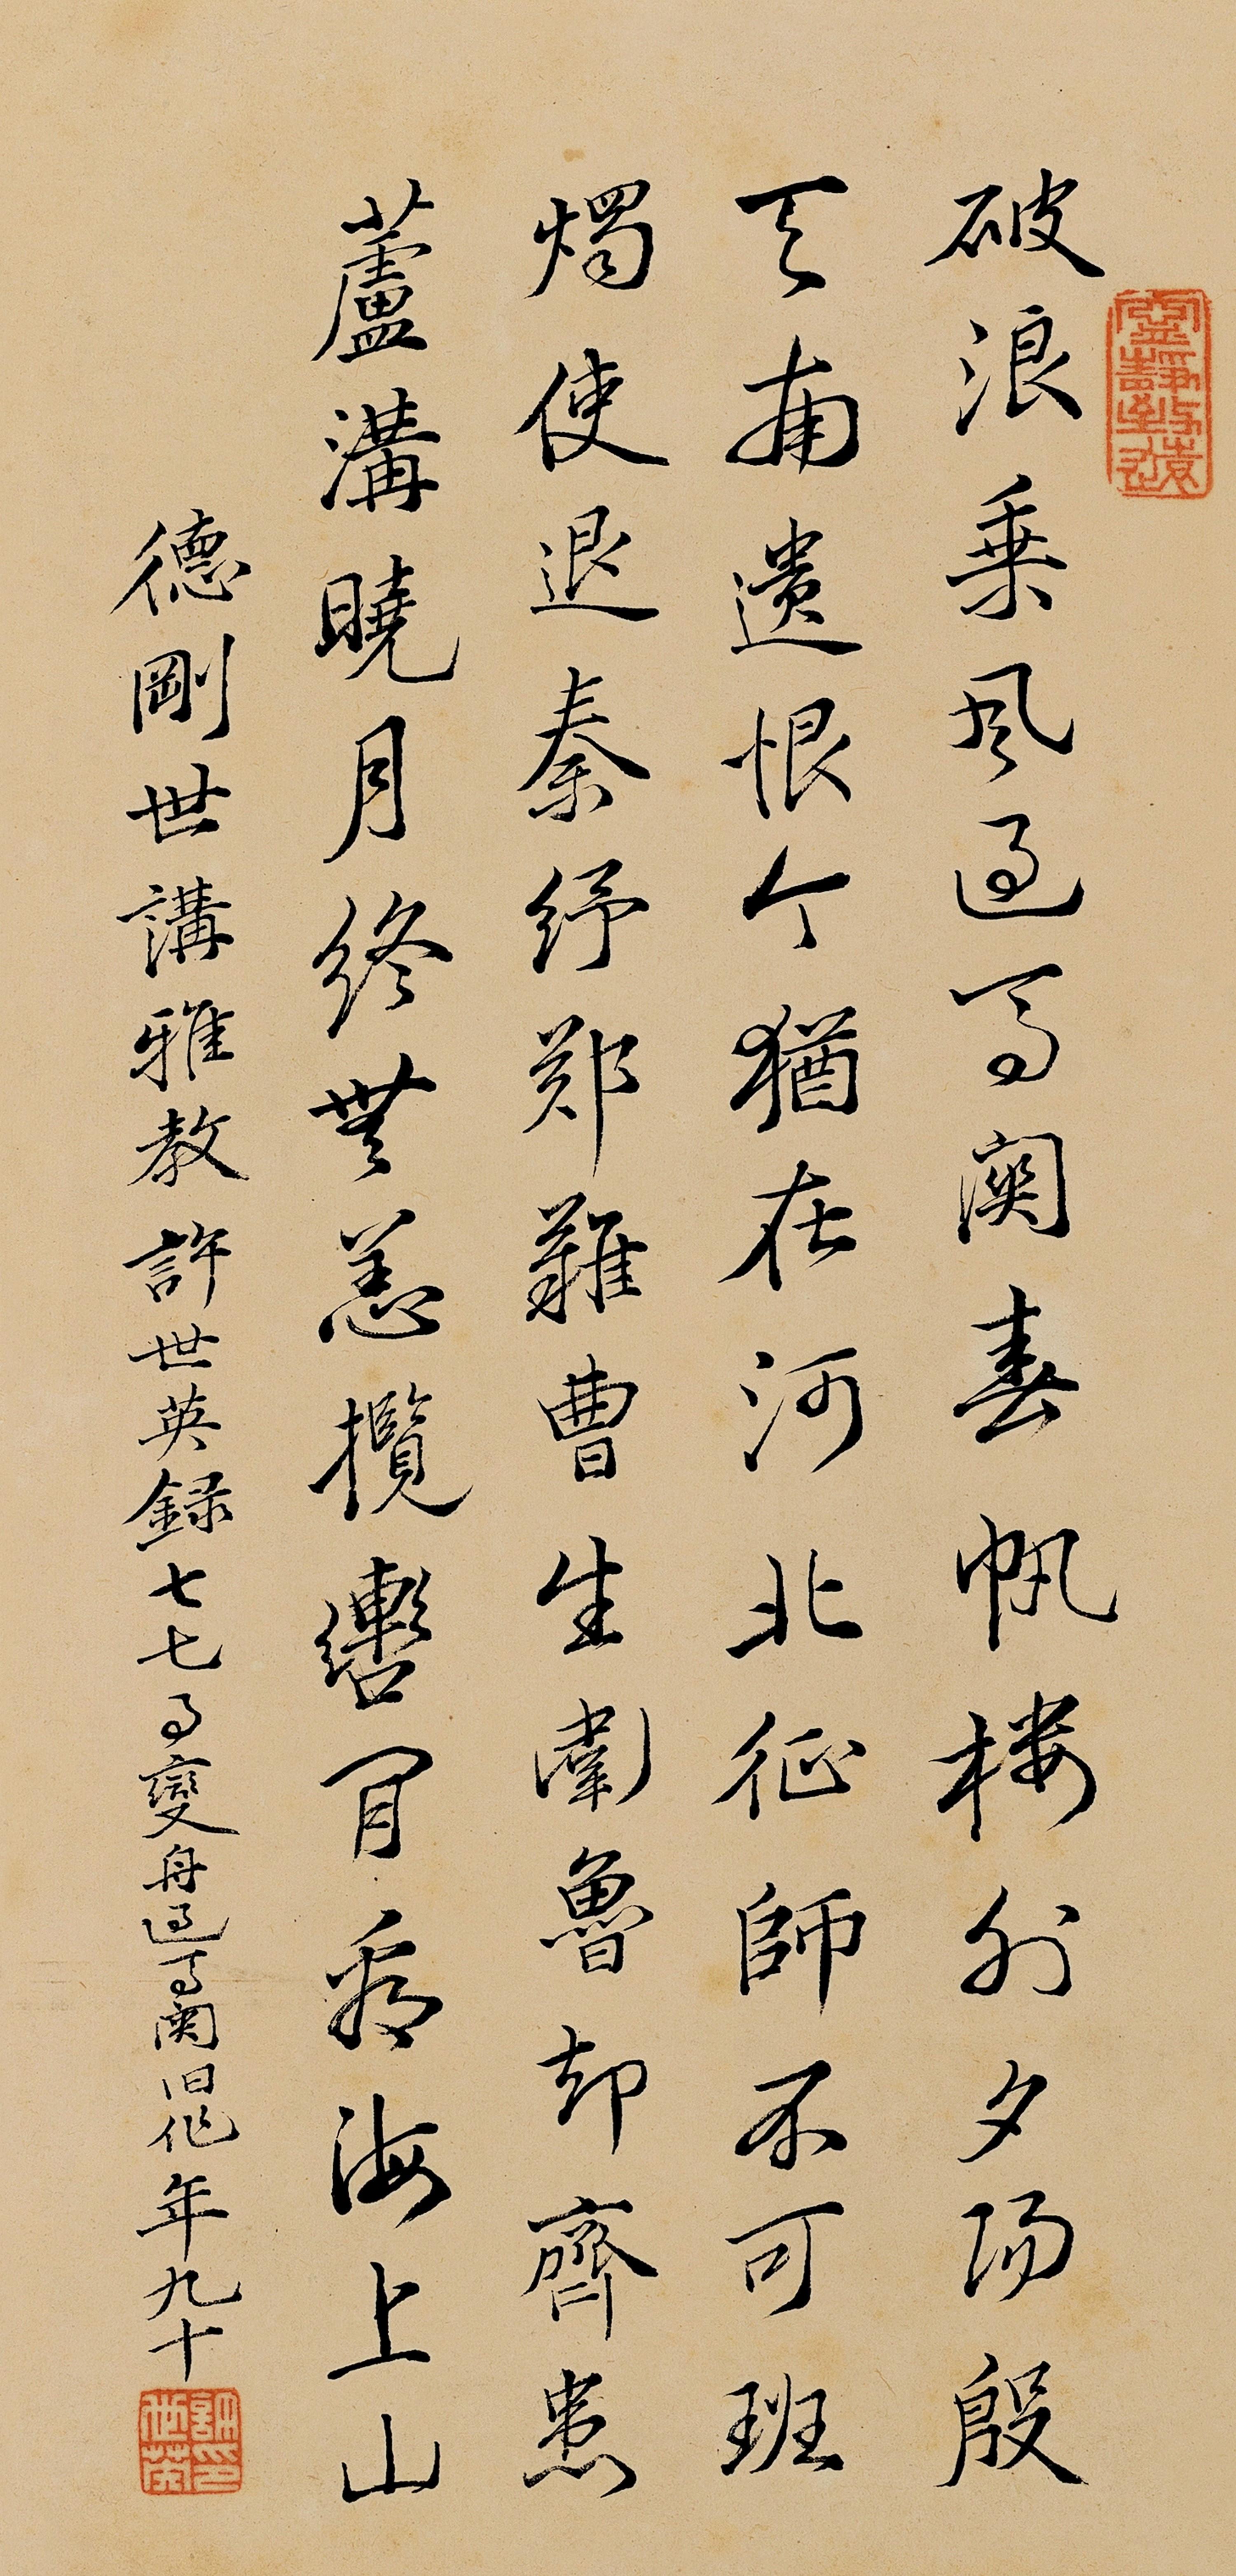 破浪乘风過馬関春帆楼外夕陽殷
天南遺恨今猶在河北征師不可班
燭使退秦紓鄭難曹生衛魯却齊患
蘆溝曉月終無恙攬轡閒看海上山
德剛世講雅教許世英録七七事變舟過馬関旧作年九十
許世英印